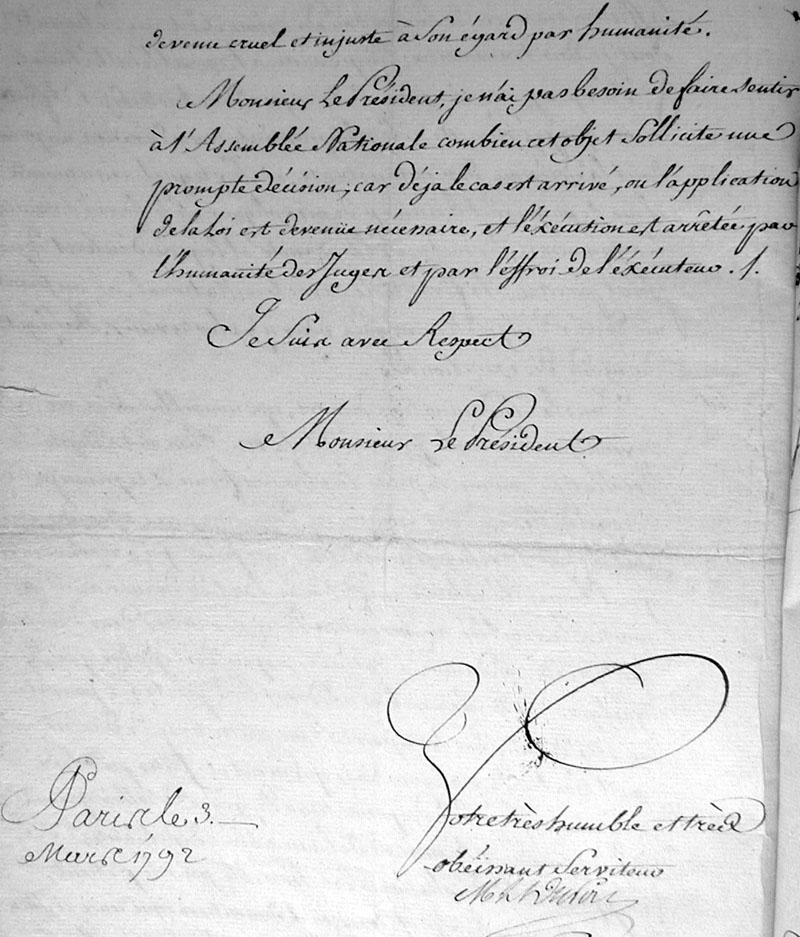 devenu cruel et injuste à Son égard par humanité.
Monsieur Le Président, je n'ai pas besoin de faire sentir
à l'Assemblée Nationale combien cet objet Sollicite une
prompte décision; car déja le cas est arrivé, ou l'application
de la Loi est devenüe nécessaire, et l'éxécution est arrêtée par
l'humanité des Juges et par l'éffroi de l'éxécuteur. /.
Je Suis avec Respect
Monsieur Le Président
Votre très humble et très
obéissant Serviteur
Paris le 3.
Mars 1792